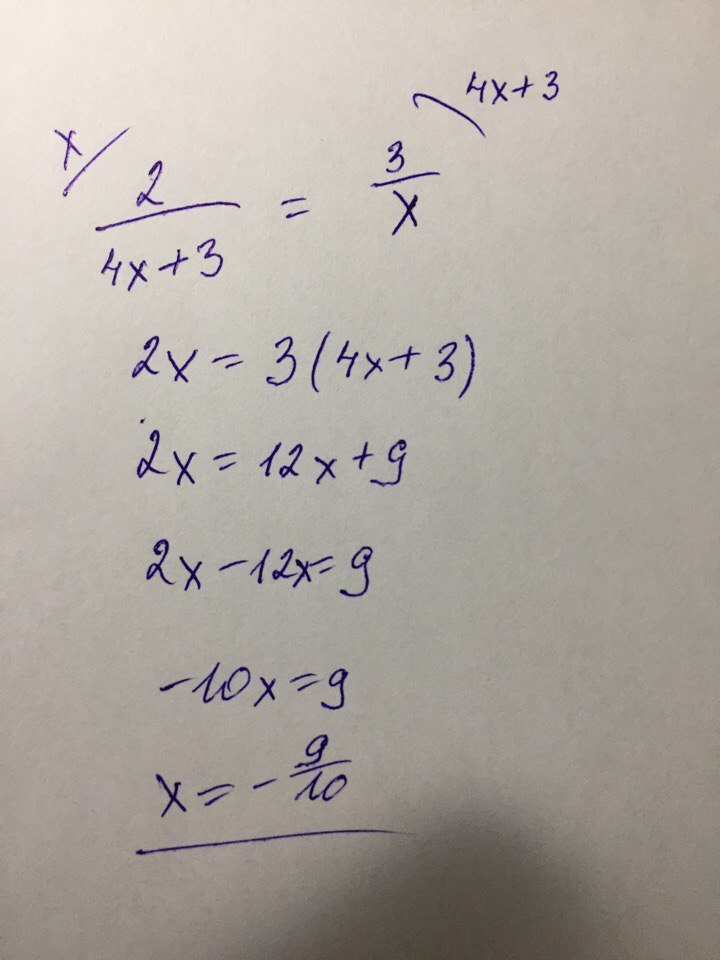 4x+3
x/ 2/(4x+3) = 3/x
2x = 3(4x+3)
2x = 12x+9
2x-12x=9
-10x=9
x=-9/10